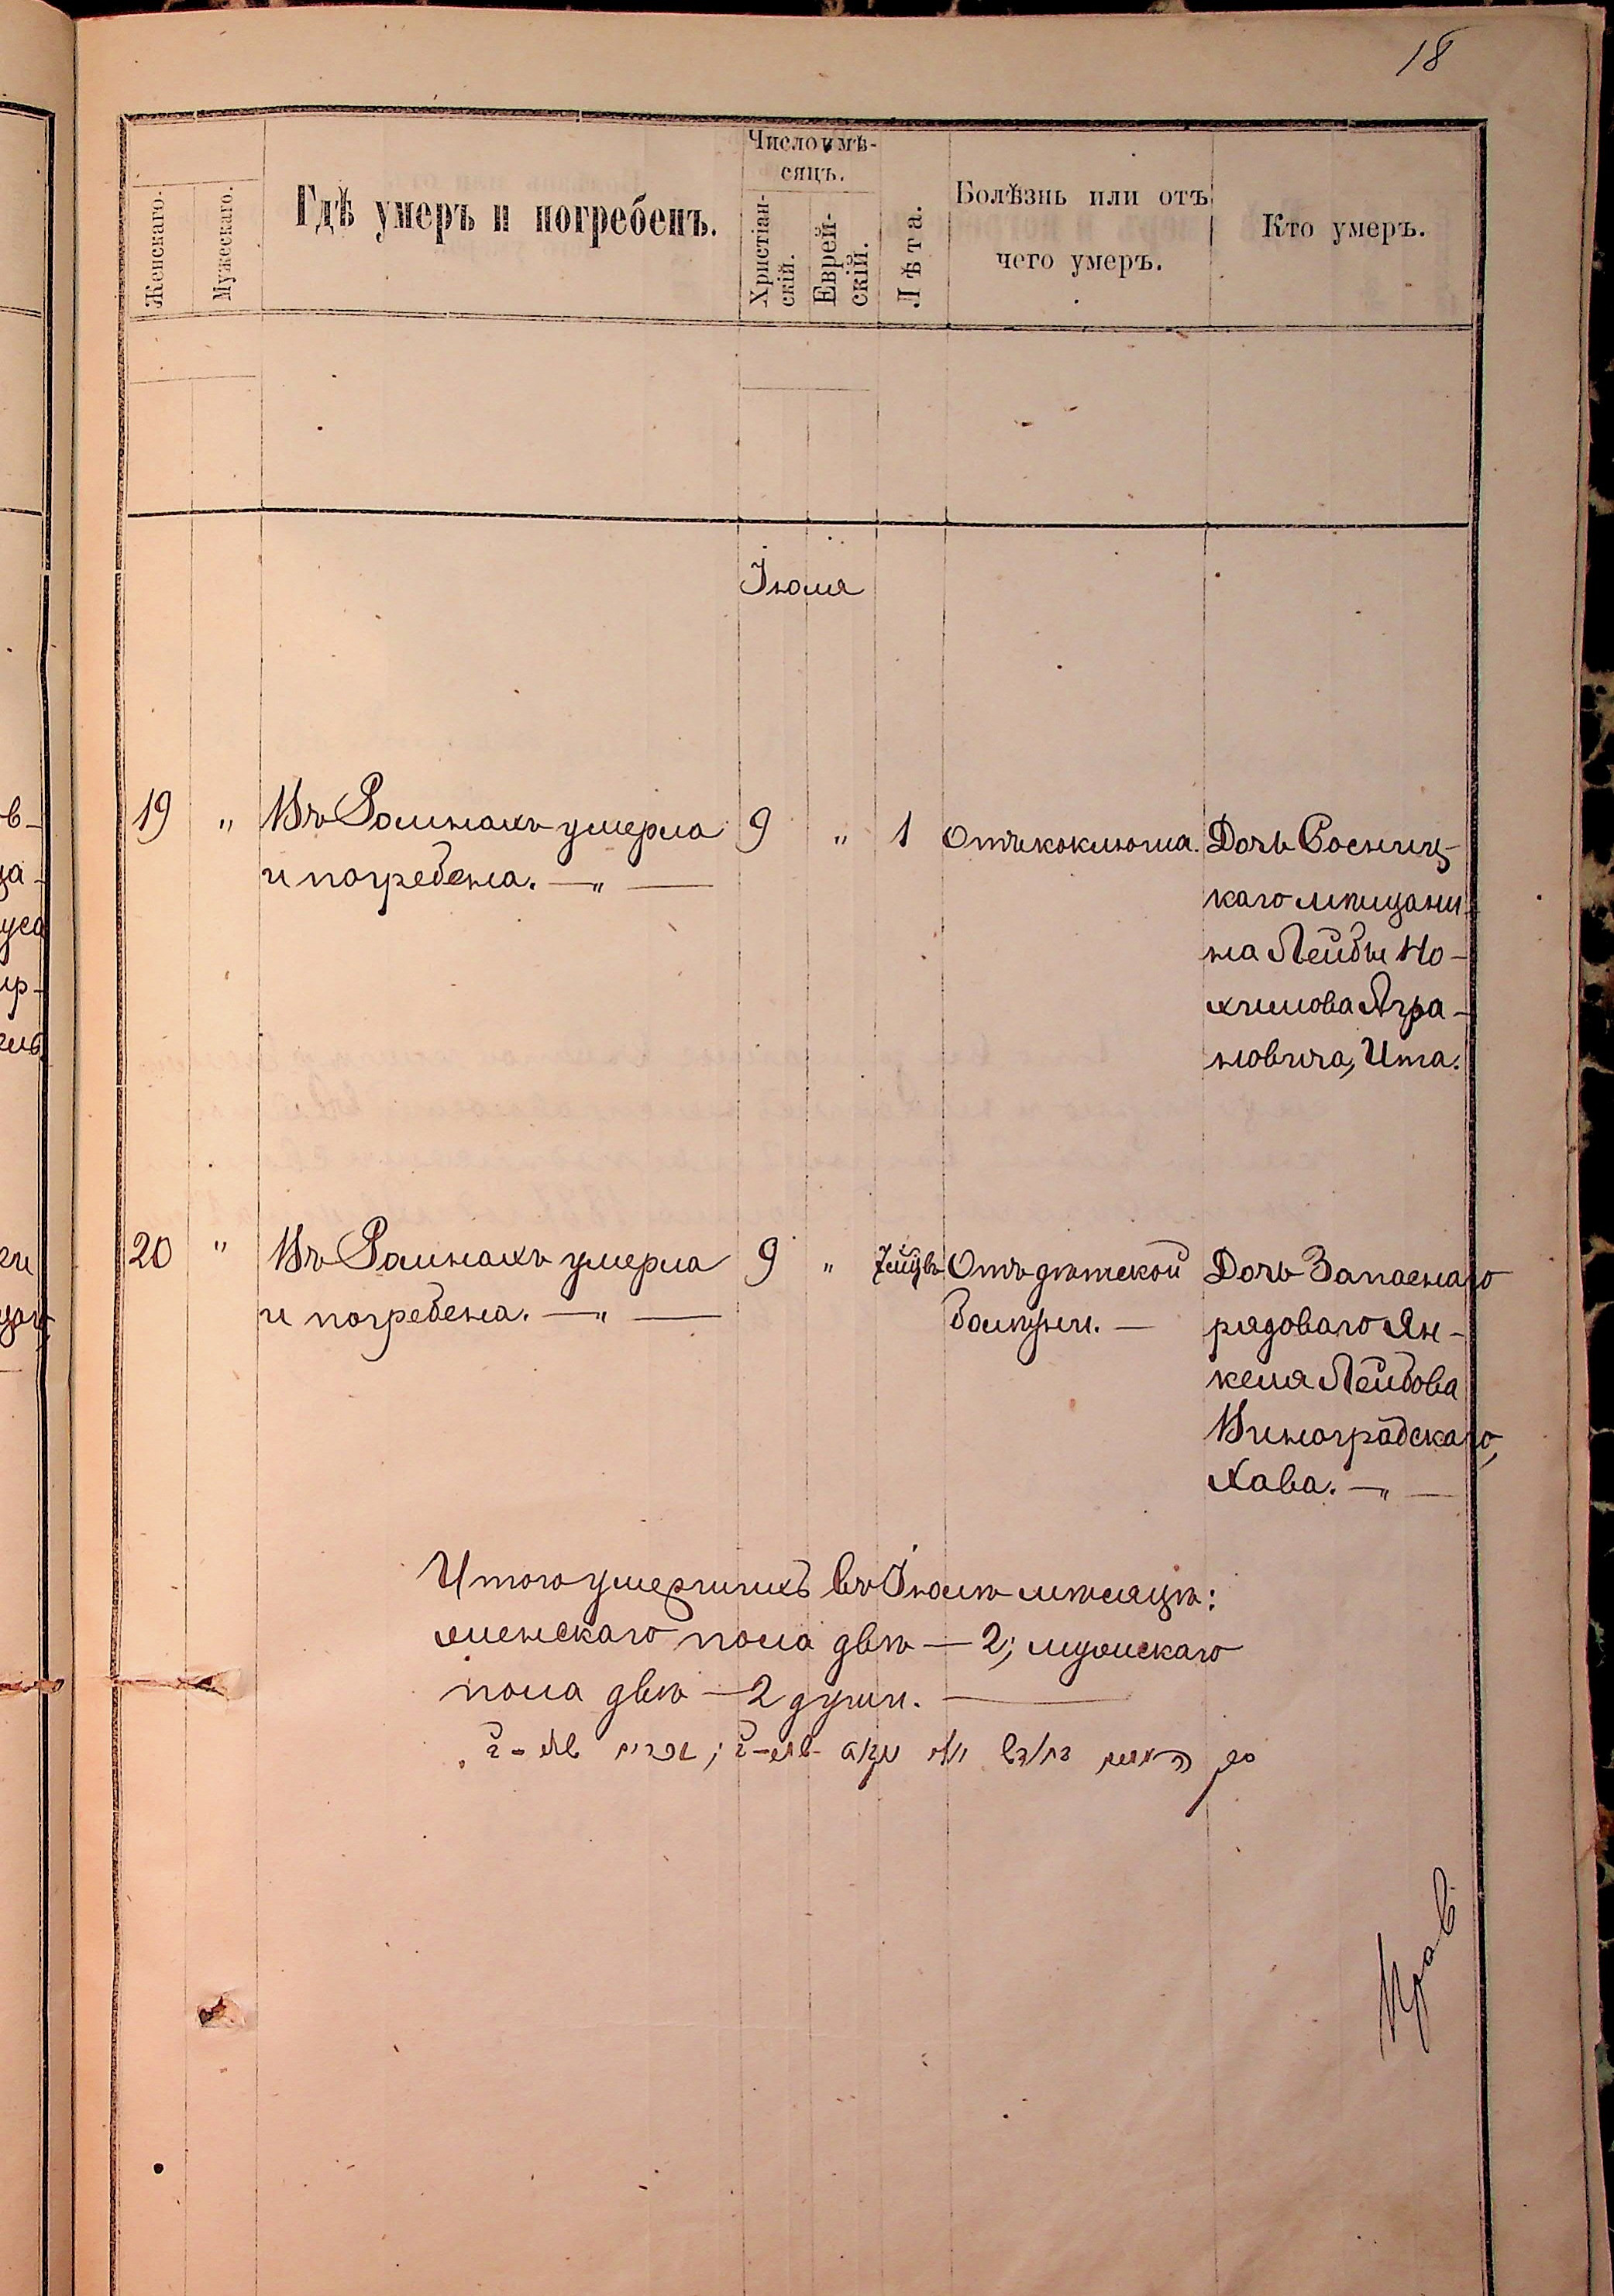 18
Женскаго.
Мужескаго.
Гдѣ умеръ и погребенъ.
Число и мѣ-
сяцъ.
Христіан-
скій.
Еврей-
скій.
Лѣта.
Болѣзнь или отъ
чего умеръ.
Кто умеръ.
Іюля
19 " Въ Ромнахъ умерла
и погребена. —"—
9 " 1
Отъ коклюша.
Дочь Сосниц-
каго мѣщани-
на Лейбы Но-
химова Агра-
новича, Ита.
20 " Въ Ромнахъ умерла
и погребена. —"—
9 "
Отъ дѣтской
болѣзни. —
Дочь Запаснаго
рядоваго Ян-
келя Лейбова
Виноградскаго,
Хава. —"—
Итого умершихъ въ Іюлѣ мѣсяцѣ:
женскаго пола двѣ — 2; мужскаго
пола двѣ — 2 души. —